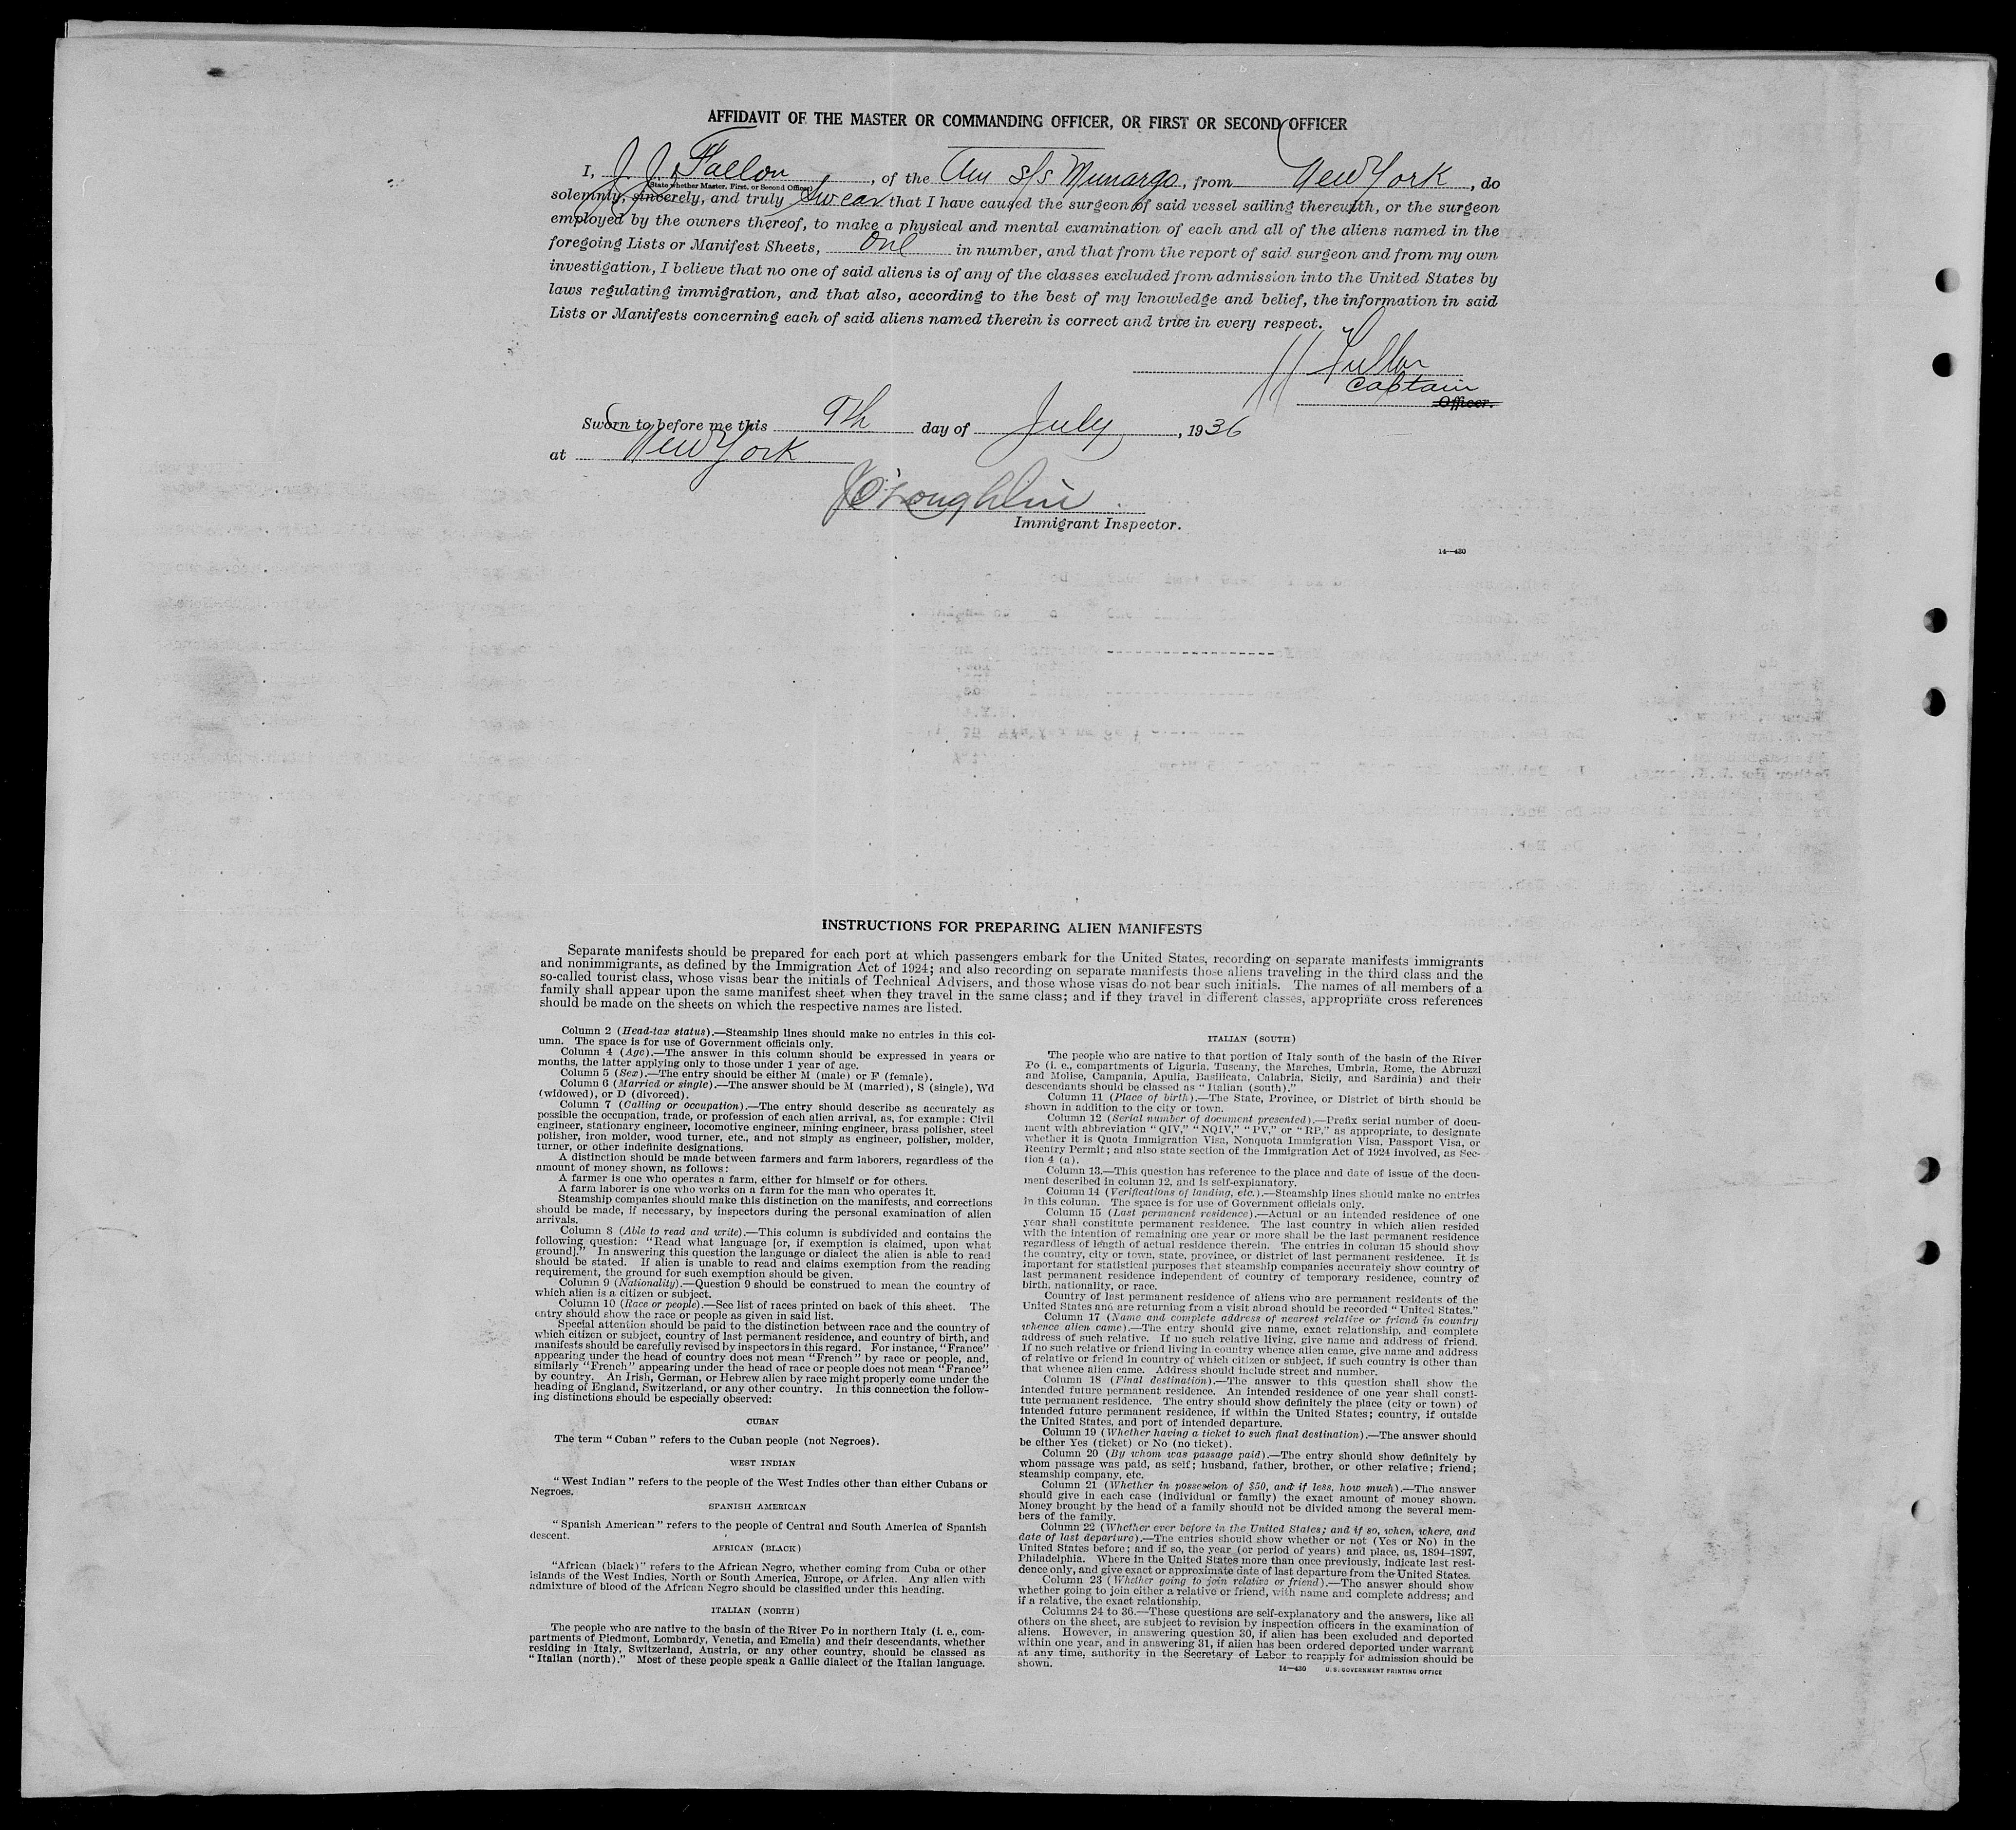 AFFIDAVIT OF THE MASTER OR COMMANDING OFFICER, OR FIRST OR SECOND OFFICER
I, J J Fallon, of the Am s/s Munargo, from New York, do
(State whether Master, First, or Second Officer)
solemnly, sincerely, and truly Swear that I have caused the surgeon of said vessel sailing therewith, or the surgeon
employed by the owners thereof, to make a physical and mental examination of each and all of the aliens named in the
foregoing Lists or Manifest Sheets, One in number, and that from the report of said surgeon and from my own
investigation, I believe that no one of said aliens is of any of the classes excluded from admission into the United States by
laws regulating immigration, and that also, according to the best of my knowledge and belief, the information in said
Lists or Manifests concerning each of said aliens named therein is correct and true in every respect.
Captain
Officer.
Sworn to before me this 9th day of July, 1936
at New York
J O'Loughlin
Immigrant Inspector.
14—430
INSTRUCTIONS FOR PREPARING ALIEN MANIFESTS
Separate manifests should be prepared for each port at which passengers embark for the United States, recording on separate manifests immigrants
and nonimmigrants, as defined by the Immigration Act of 1924; and also recording on separate manifests those aliens traveling in the third class and the
so-called tourist class, whose visas bear the initials of Technical Advisers, and those whose visas do not bear such initials. The names of all members of a
family shall appear upon the same manifest sheet when they travel in the same class; and if they travel in different classes, appropriate cross references
should be made on the sheets on which the respective names are listed.
Column 2 (Head-tax status).—Steamship lines should make no entries in this col-
umn. The space is for use of Government officials only.
Column 4 (Age).—The answer in this column should be expressed in years or
months, the latter applying only to those under 1 year of age.
Column 5 (Sex).—The entry should be either M (male) or F (female).
Column 6 (Married or single).—The answer should be M (married), S (single), Wd
(widowed), or D (divorced).
Column 7 (Calling or occupation).—The entry should describe as accurately as
possible the occupation, trade, or profession of each alien arrival, as, for example: Civil
engineer, stationary engineer, locomotive engineer, mining engineer, brass polisher, steel
polisher, iron molder, wood turner, etc., and not simply as engineer, polisher, molder,
turner, or other indefinite designations.
A distinction should be made between farmers and farm laborers, regardless of the
amount of money shown, as follows:
A farmer is one who operates a farm, either for himself or for others.
A farm laborer is one who works on a farm for the man who operates it.
Steamship companies should make this distinction on the manifests, and corrections
should be made, if necessary, by inspectors during the personal examination of alien
arrivals.
Column 8 (Able to read and write).—This column is subdivided and contains the
following question: "Read what language [or, if exemption is claimed, upon what
ground]." In answering this question the language or dialect the alien is able to read
should be stated. If alien is unable to read and claims exemption from the reading
requirement, the ground for such exemption should be given.
Column 9 (Nationality).—Question 9 should be construed to mean the country of
which alien is a citizen or subject.
Column 10 (Race or people).—See list of races printed on back of this sheet. The
entry should show the race or people as given in said list.
Special attention should be paid to the distinction between race and the country of
which citizen or subject, country of last permanent residence, and country of birth, and
manifests should be carefully revised by inspectors in this regard. For instance, "France"
appearing under the head of country does not mean "French" by race or people, and,
similarly "French" appearing under the head of race or people does not mean "France"
by country. An Irish, German, or Hebrew alien by race might properly come under the
heading of England, Switzerland, or any other country. In this connection the follow-
ing distinctions should be especially observed:
CUBAN
The term "Cuban" refers to the Cuban people (not Negroes).
WEST INDIAN
"West Indian" refers to the people of the West Indies other than either Cubans or
Negroes.
SPANISH AMERICAN
"Spanish American" refers to the people of Central and South America of Spanish
descent.
AFRICAN (BLACK)
"African (black)" refers to the African Negro, whether coming from Cuba or other
islands of the West Indies, North or South America, Europe, or Africa. Any alien with
admixture of blood of the African Negro should be classified under this heading.
ITALIAN (NORTH)
The people who are native to the basin of the River Po in northern Italy (i. e., com-
partments of Piedmont, Lombardy, Venetia, and Emelia) and their descendants, whether
residing in Italy, Switzerland, Austria, or any other country, should be classed as
"Italian (north)." Most of these people speak a Gallic dialect of the Italian language.
ITALIAN (SOUTH)
The people who are native to that portion of Italy south of the basin of the River
Po (i. e., compartments of Liguria, Tuscany, the Marches, Umbria, Rome, the Abruzzi
and Molise, Campania, Apulia, Basilicata, Calabria, Sicily, and Sardinia) and their
descendants should be classed as "Italian (south)."
Column 11 (Place of birth).—The State, Province, or District of birth should be
shown in addition to the city or town.
Column 12 (Serial number of document presented).—Prefix serial number of docu-
ment with abbreviation "QIV," "NQIV," "PV," or "RP," as appropriate, to designate
whether it is Quota Immigration Visa, Nonquota Immigration Visa, Passport Visa, or
Reentry Permit; and also state section of the Immigration Act of 1924 involved, as Sec-
tion 4 (a).
Column 13.—This question has reference to the place and date of issue of the docu-
ment described in column 12, and is self-explanatory.
Column 14 (Verifications of landing, etc.).—Steamship lines should make no entries
in this column. The space is for use of Government officials only.
Column 15 (Last permanent residence).—Actual or an intended residence of one
year shall constitute permanent residence. The last country in which alien resided
with the intention of remaining one year or more shall be the last permanent residence
regardless of length of actual residence therein. The entries in column 15 should show
the country, city or town, state, province, or district of last permanent residence. It is
important for statistical purposes that steamship companies accurately show country of
last permanent residence independent of country of temporary residence, country of
birth, nationality, or race.
Country of last permanent residence of aliens who are permanent residents of the
United States and are returning from a visit abroad should be recorded "United States."
Column 17 (Name and complete address of nearest relative or friend in country
whence alien came).—The entry should give name, exact relationship, and complete
address of such relative. If no such relative living, give name and address of friend.
If no such relative or friend living in country whence alien came, give name and address
of relative or friend in country of which citizen or subject, if such country is other than
that whence alien came. Address should include street and number.
Column 18 (Final destination).—The answer to this question shall show the
intended future permanent residence. An intended residence of one year shall consti-
tute permanent residence. The entry should show definitely the place (city or town) of
intended future permanent residence, if within the United States; country, if outside
the United States, and port of intended departure.
Column 19 (Whether having a ticket to such final destination).—The answer should
be either Yes (ticket) or No (no ticket).
Column 20 (By whom was passage paid).—The entry should show definitely by
whom passage was paid, as self; husband, father, brother, or other relative; friend;
steamship company, etc.
Column 21 (Whether in possession of $50, and if less, how much).—The answer
should give in each case (individual or family) the exact amount of money shown.
Money brought by the head of a family should not be divided among the several mem-
bers of the family.
Column 22 (Whether ever before in the United States; and if so, when, where, and
date of last departure).—The entries should show whether or not (Yes or No) in the
United States before; and if so, the year (or period of years) and place, as, 1894–1897,
Philadelphia. Where in the United States more than once previously, indicate last resi-
dence only, and give exact or approximate date of last departure from the United States.
Column 23 (Whether going to join relative or friend).—The answer should show
whether going to join either a relative or friend, with name and complete address; and
if a relative, the exact relationship.
Columns 24 to 36.—These questions are self-explanatory and the answers, like all
others on the sheet, are subject to revision by inspection officers in the examination of
aliens. However, in answering question 30, if alien has been excluded and deported
within one year, and in answering 31, if alien has been ordered deported under warrant
at any time, authority in the Secretary of Labor to reapply for admission should be
shown.
14—430 U. S. GOVERNMENT PRINTING OFFICE